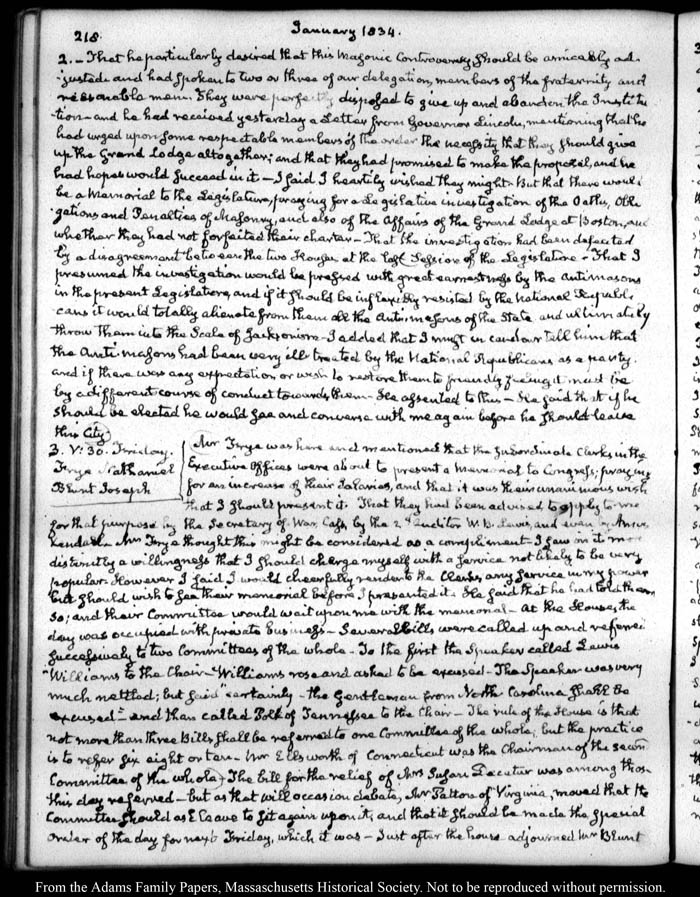 218.
January 1834.
2. – That he particularly desired that this Masonic Controversy should be amicably ad-
justed and had spoken to two or three of our delegation, members of the fraternity and
reasonable men. They were perfectly disposed to give up and abandon the Institu-
tion – and he had received yesterday a Letter from Governor Lincoln, mentioning that he
had urged upon some respectable members of the order the necessity that they should give
up the Grand Lodge altogether; and that they had promised to make the proposal, and he
had hopes would succeed in it – I said I heartily wished they might. But that there would
be a Memorial to the Legislature, praying for a Legislative investigation of the Oaths, Obli-
gations and Penalties of Masonry, and also of the Affairs of the Grand Lodge at Boston, and
whether they had not forfeited their charter – That the investigation had been defeated
by a disagreement between the two Houses, at the last Session of the Legislature – That I
presumed the investigation would be pressed with great earnestness by the Antimasons
in the present Legislature, and if it should be inflexibly resisted by the National Republi-
cans it would totally alienate from them all the Antimasons of the State and ultimately
throw them into the Scale of Jacksonism – I added that I must in candour tell him that
the Antimasons had been very ill treated by the National Republicans as a party.
and if there was any expectation or wish to restore them to friendly feelings it must be
by a different course of conduct towards them – He assented to this – He said that if he
should be elected he would see and converse with me again before he should leave
this City
3. V: 30. Friday.
Frye Nathaniel
Blunt Joseph
Mr Frye was here and mentioned that the subordinate Clerks in the
Executive Offices were about to present a Memorial to Congress, praying
for an increase of their Salaries, and that it was their unanimous wish
that I should present it. That they had been advised to apply to me
for that purpose by the Secretary of War, Cass, by the 2d Auditor W. B. Lewis, and even by Amos
Kendall. Mr Frye thought this might be considered as a compliment – I saw in it more
distinctly a willingness that I should charge myself with a service not likely to be very
popular. However I said I would cheerfully render to the Clerks, any service in my power
but should wish to see their memorial before I presented it. He said that he had told them
so; and their Committee would wait upon me with the memorial – At the House, the
day was occupied with private business – Several Bills were called up and referred
successively to two Committees of the whole – To the first the Speaker called Lewis
Williams to the Chair – Williams rose and asked to be excused – The Speaker was very
much nettled; but said "certainly – the Gentleman from North Carolina shall be
excused" – and then called Polk of Tennessee to the Chair – The rule of the House is that
not more than three Bills shall be referred to one Committee of the whole, but the practice
is to refer six eight or ten – Mr Ellsworth of Connecticut was the Chairman of the second
Committee of the whole, The bill for the relief of Mrs Susan Decatur was among those
this day referred – but as that will occasion debate, Mr Patton of Virginia, moved that the
Committee should ask leave to sit again upon it, and that it should be made the special
order of the day for next Friday, which it was – Just after the house adjourned Mr Blunt
From the Adams Family Papers, Massachusetts Historical Society. Not to be reproduced without permission.